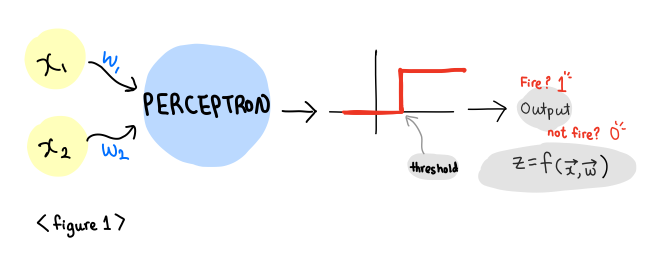 x₁
w₁
x₂
w₂
PERCEPTRON
threshold
Fire? 1
Output
not fire? 0
z=f(x⃗,w⃗)
<figure 1>